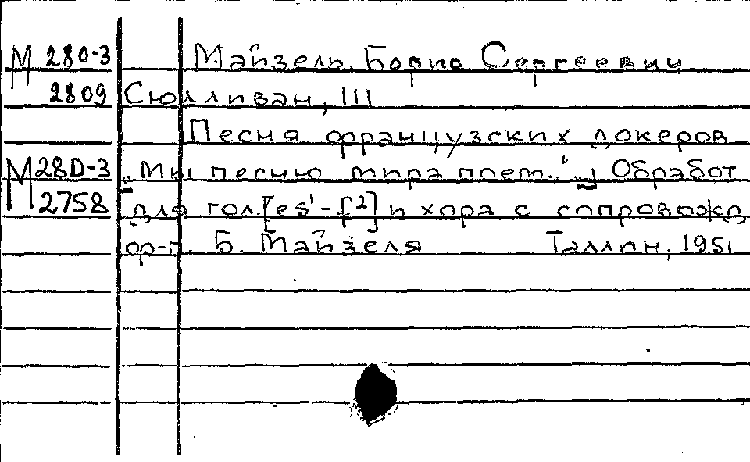 М 280-3 Майзель Борис Сергеевич
2809 Сюлливан, Ш
Песня французских докеров
М 28D-3 „Мы песню мира поем..“ Обработ
2758 для гол[es¹-f²] и хора с сопровожд
ор-п. Б. Майзеля Таллин, 1951